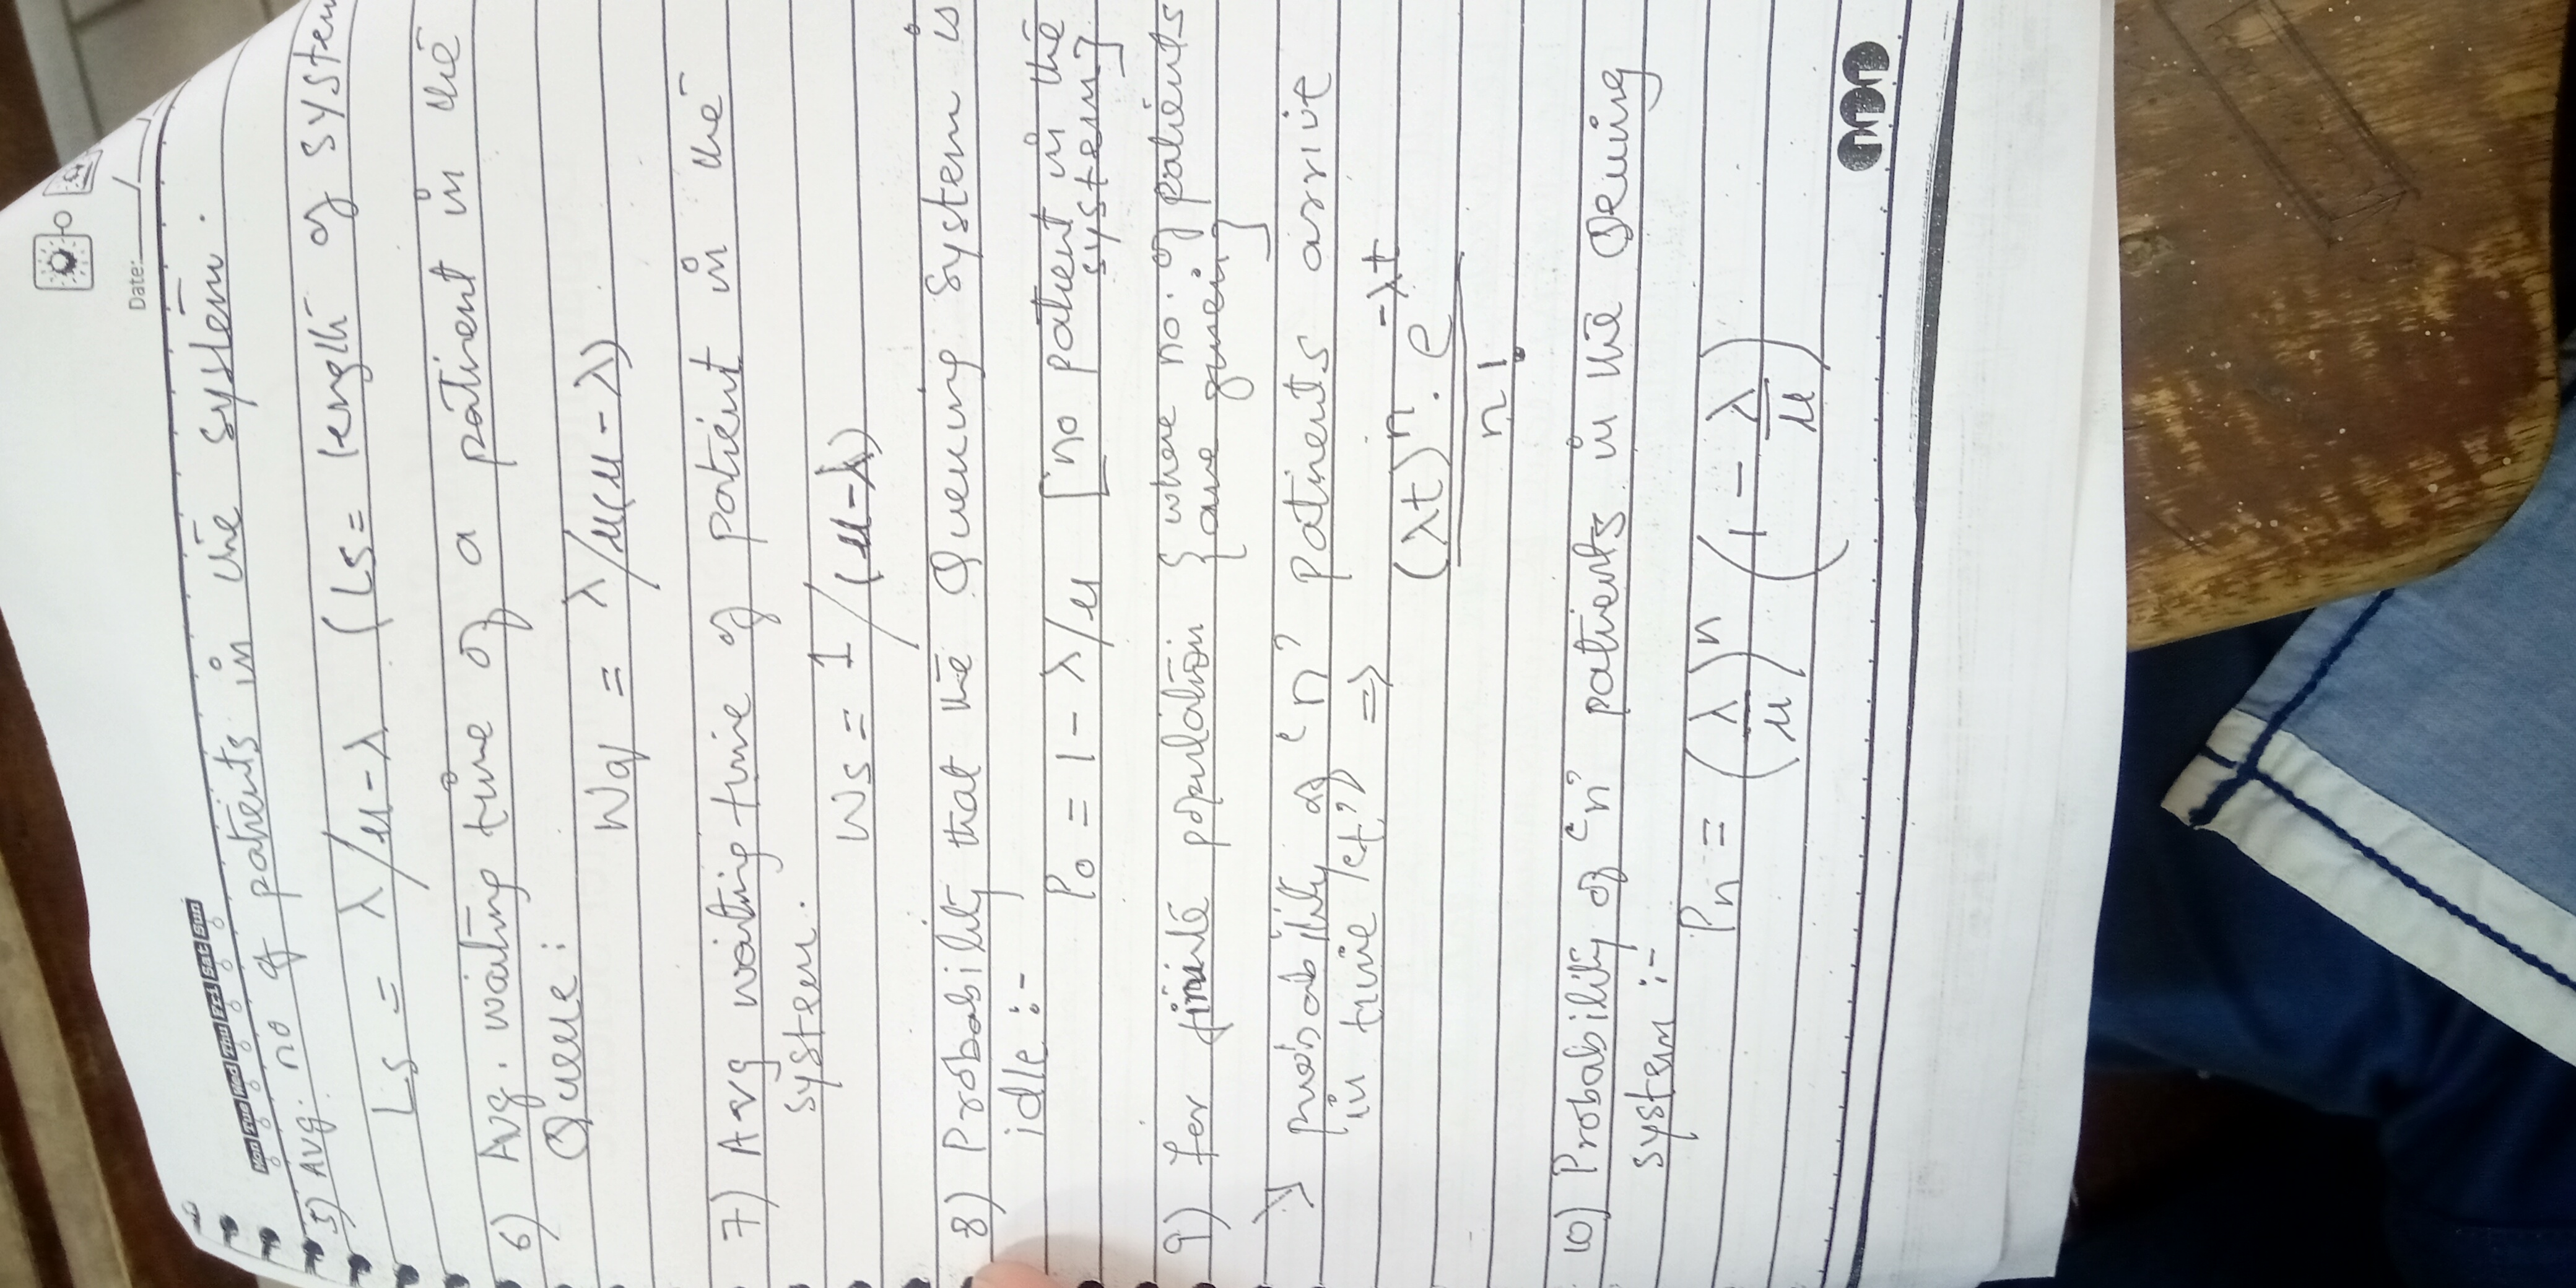 Date:
Mon Tue Wed Thu Fri Sat Sun
5) Avg. no of patients in the system.
Ls = λ/μ-λ (Ls = length of system
6) Avg. waiting time of a patient in the
Queue:
Wq = λ/μ(μ-λ)
7) Avg waiting time of patient in the
system.
Ws = 1/(μ-λ)
8) Probability that the Queuing System is
idle :-
P₀ = 1 - λ/μ [no patient in the
system]
9) for finite population { where no. of patients
are given}
↘ probability of 'n' patients arrive
in time 't' ⇒
(λt)ⁿ . e^-λt
n!
10) Probability of 'n' patients in the Qeuing
system :-
Pn = (λ/μ)ⁿ (1 - λ/μ)